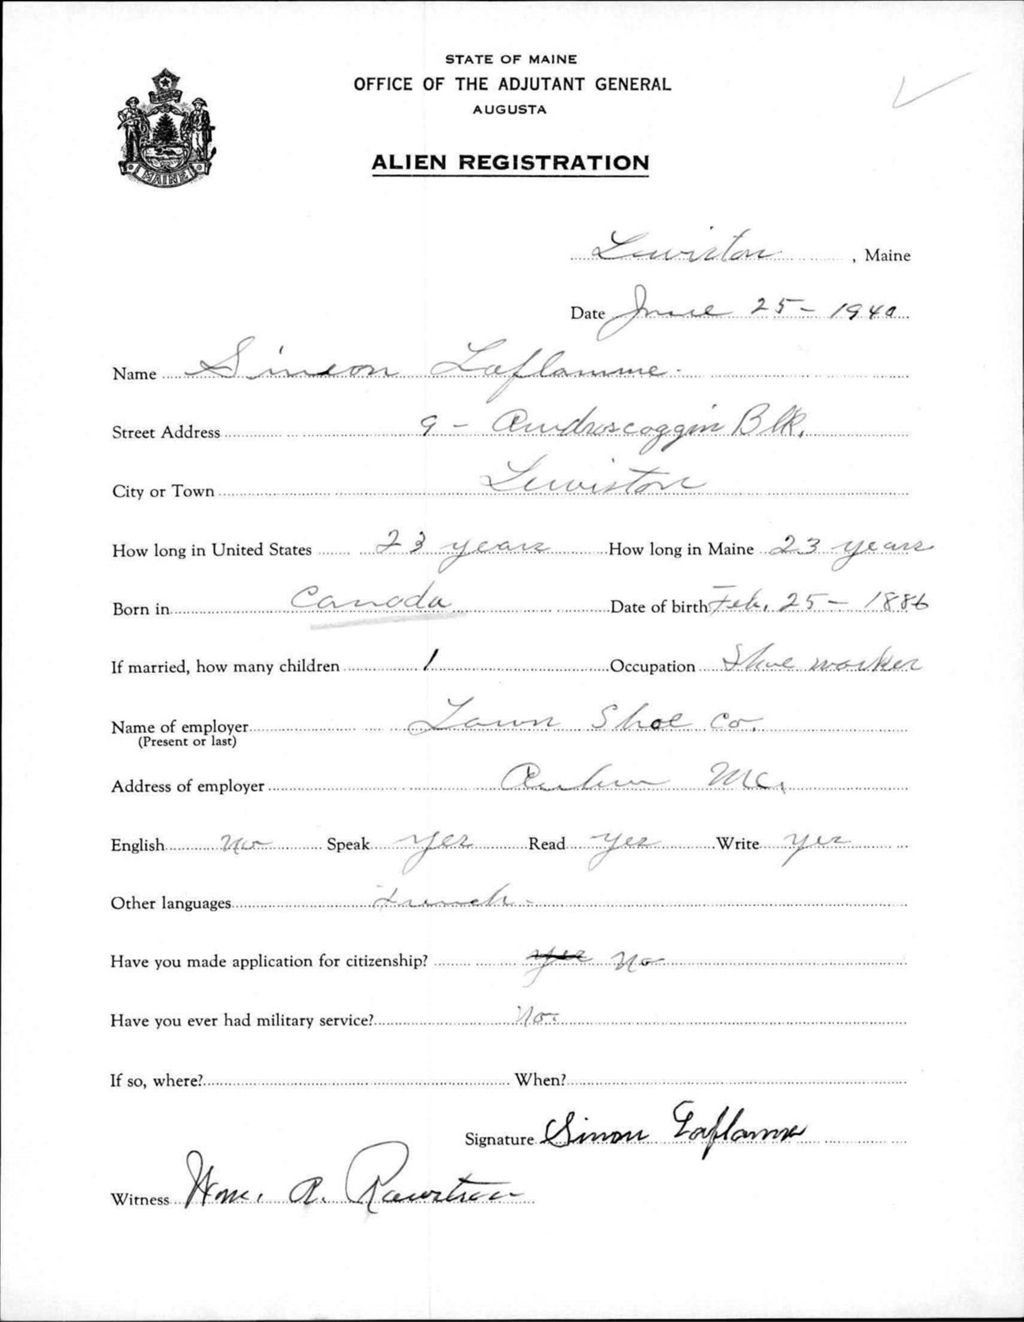 STATE OF MAINE
OFFICE OF THE ADJUTANT GENERAL
AUGUSTA
MAINE
ALIEN REGISTRATION
Lewiston, Maine
Date June 25 - 1940
Name Simeon Laflamme
Street Address 9 - Androscoggin Blk.
City or Town Lewiston
How long in United States 23 years How long in Maine 23 years
Born in Canada Date of birth Feb. 25 - 1886
If married, how many children 1 Occupation Shoe worker
Name of employer Shoe Co.
(Present or last)
Address of employer Auburn Me.
English No Speak yes Read yes Write yes
Other languages French -
Have you made application for citizenship? yes No
Have you ever had military service? No.
If so, where? When?
Signature Simon Laflamme
Witness Wm. A.